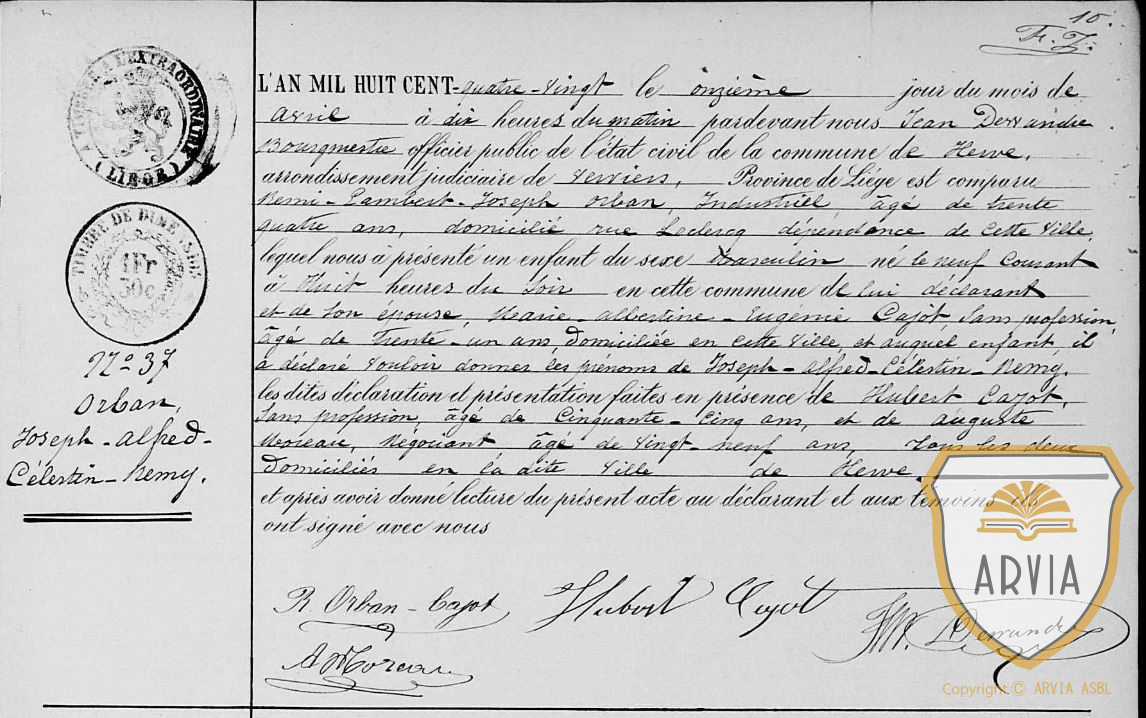 10.
F. J.
TIMBRE A L'EXTRAORDINAIRE
(LIEGE)
TIMBRE DE DIMENSION
1Fr
30c
N° 37
Orban,
Joseph - Alfred -
Célestin - Remy.
L'AN MIL HUIT CENT - quatre - vingt le onzième jour du mois de
avril à dix heures du matin pardevant nous Jean Dewandre
Bourgmestre officier public de l'état civil de la commune de Herve,
arrondissement judiciaire de Verviers, Province de Liége est comparu
Remi - Lambert - Joseph Orban, Industriel, âgé de trente
quatre ans, domicilié rue Leclercq dépendance de cette Ville,
lequel nous à présenté un enfant du sexe Masculin né le neuf courant
à Huit heures du Soir en cette commune de lui déclarant
et de Son épouse, Marie - Albertine - Eugenie Cajot, Sans profession,
âgé de trente - un ans, Domiciliée en cette Ville, et auquel enfant, il
a déclaré Vouloir donner les prénoms de Joseph - Alfred - Célestin - Remy.
les dites déclaration et présentation faites en présence de Hubert Cajot,
Sans profession, âgé de Cinquante - Cinq ans, et de auguste
Moreau, Négociant âgé de Vingt - neuf ans, Tous les deux
Domiciliés en la dite Ville de Herve.
et après avoir donné lecture du présent acte au déclarant et aux témoins ils
ont signé avec nous
R. Orban - Cajot
Hubert Cajot
A Moreau
Dewandre
ARVIA
Copyright © ARVIA ASBL